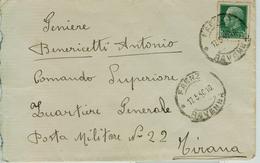 Geniere
Benericetti Antonio
Comando Superiore
Quartiere Generale
Posta Militare N. 22
Tirana
FAENZA
RAVENNA
FAENZA
RAVENNA